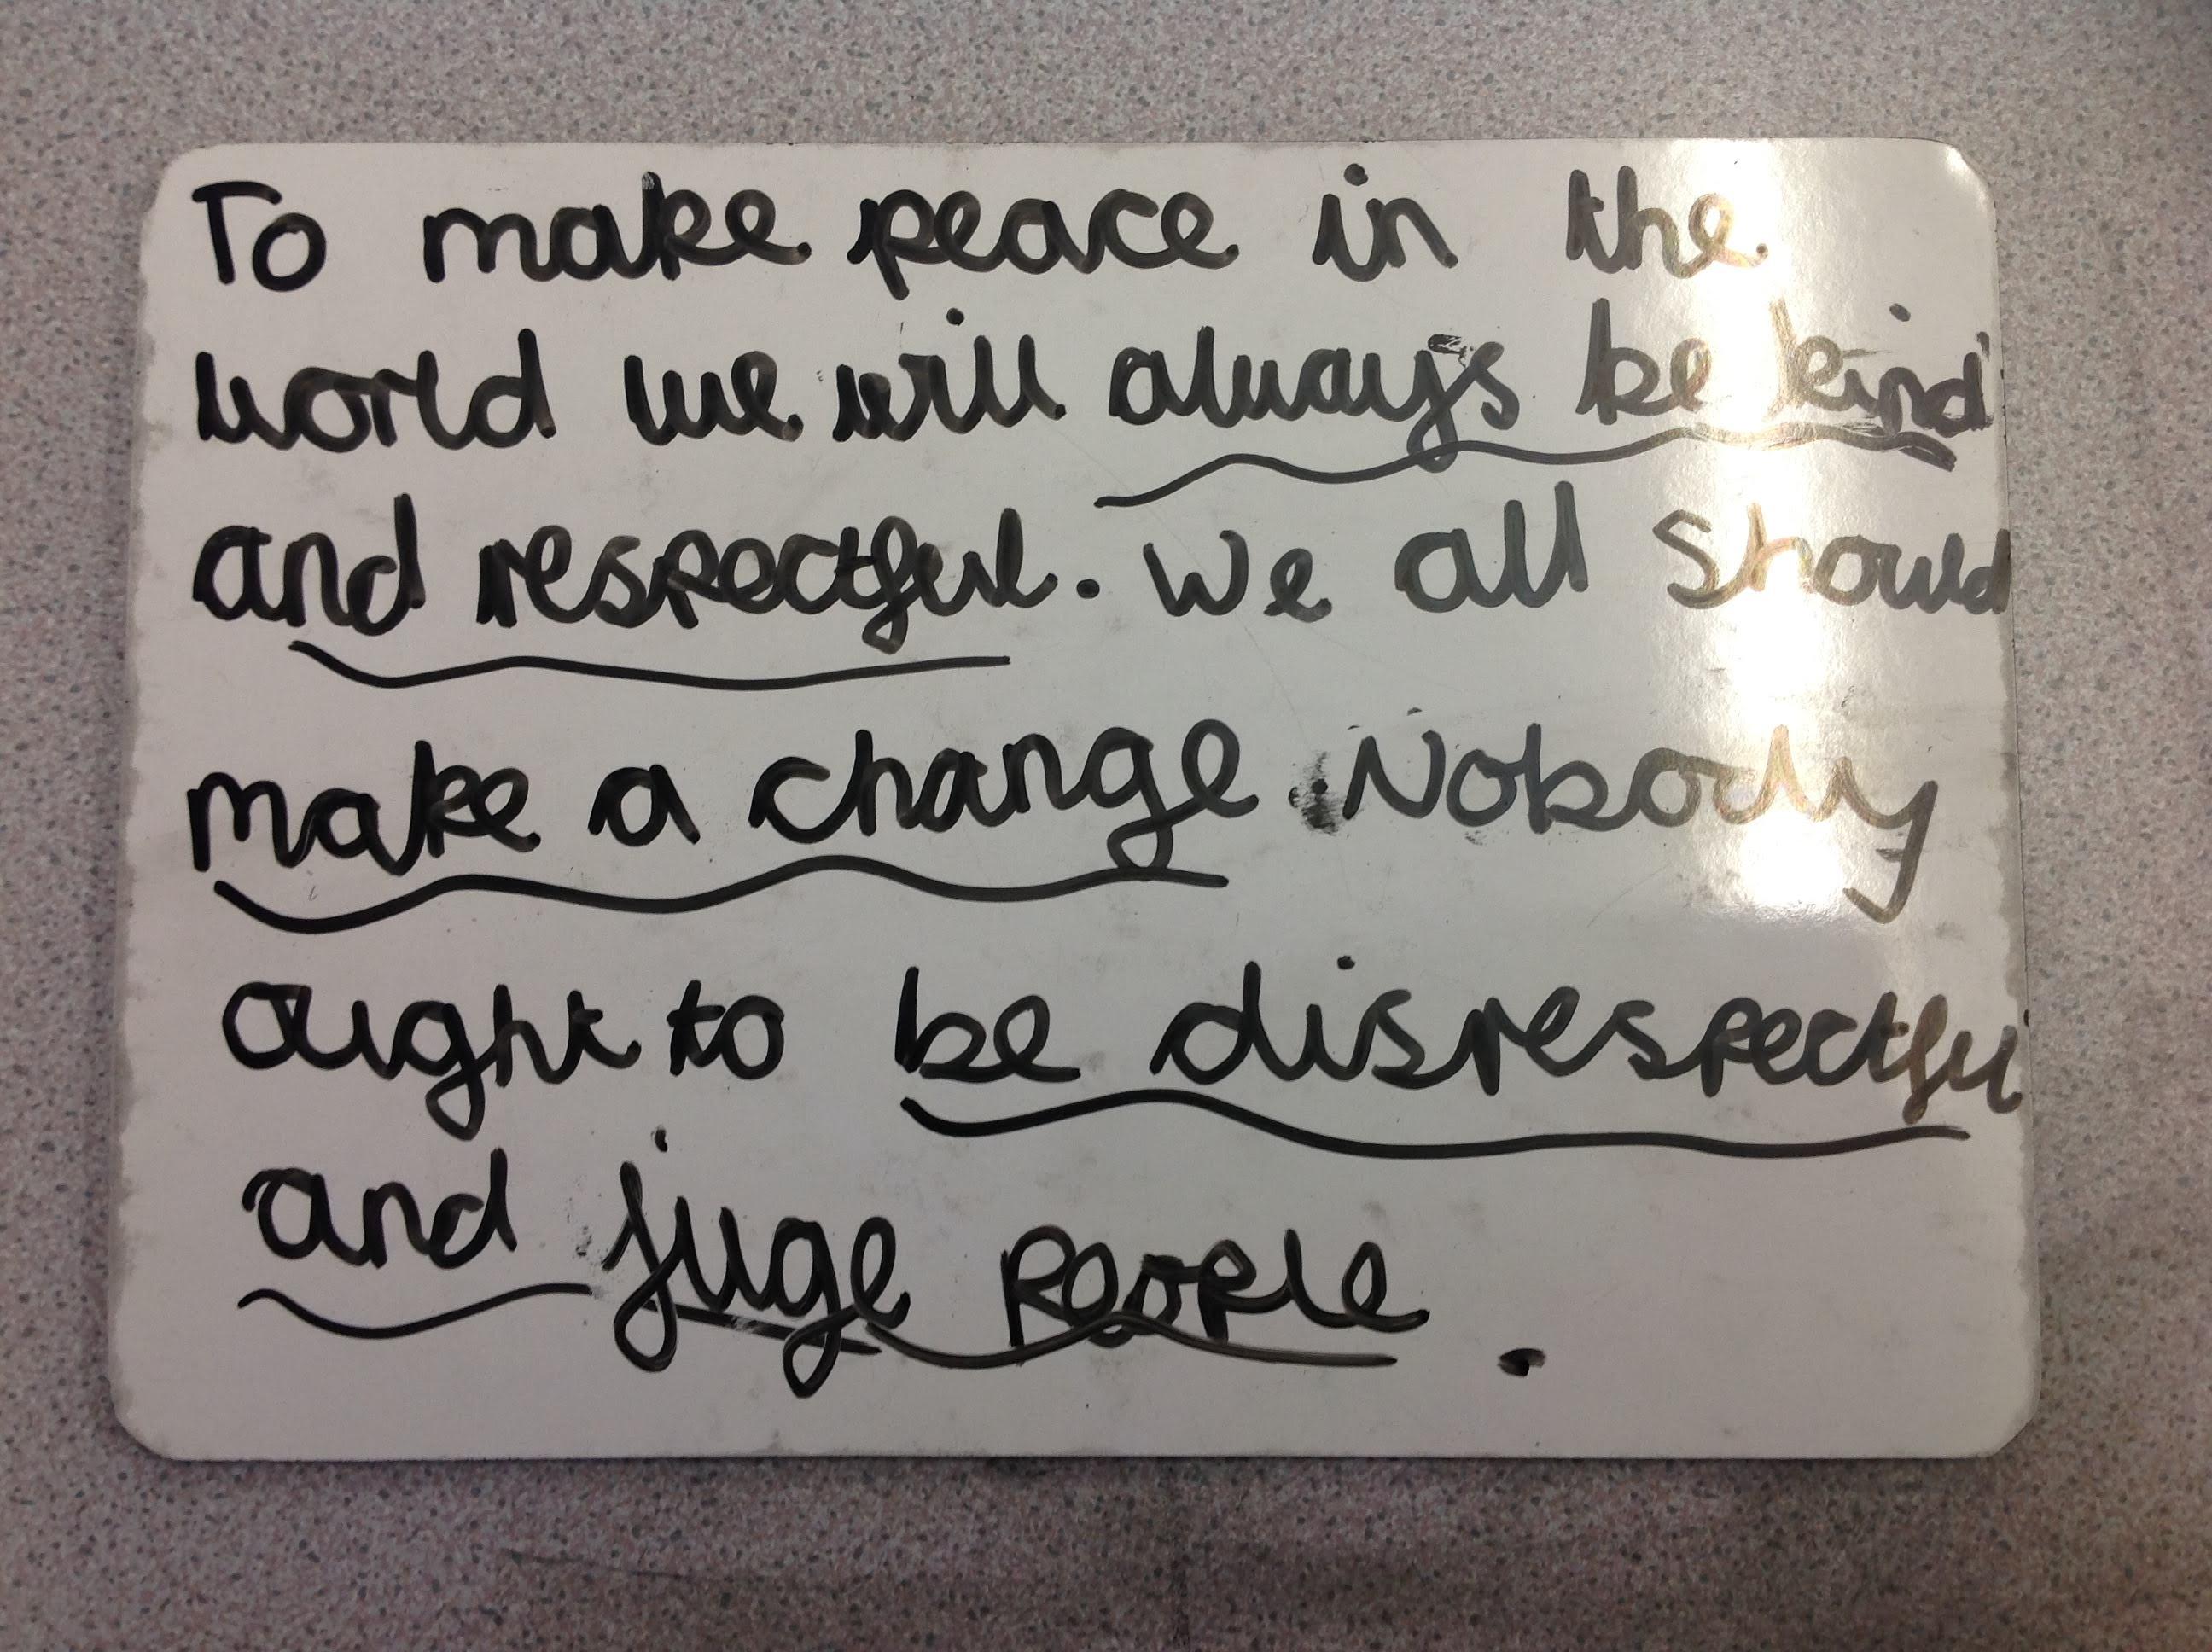 To make peace in the
world we will always be kind
and respectful. We all should
make a change. Nobody
ought to be disrespectful
and juge people.